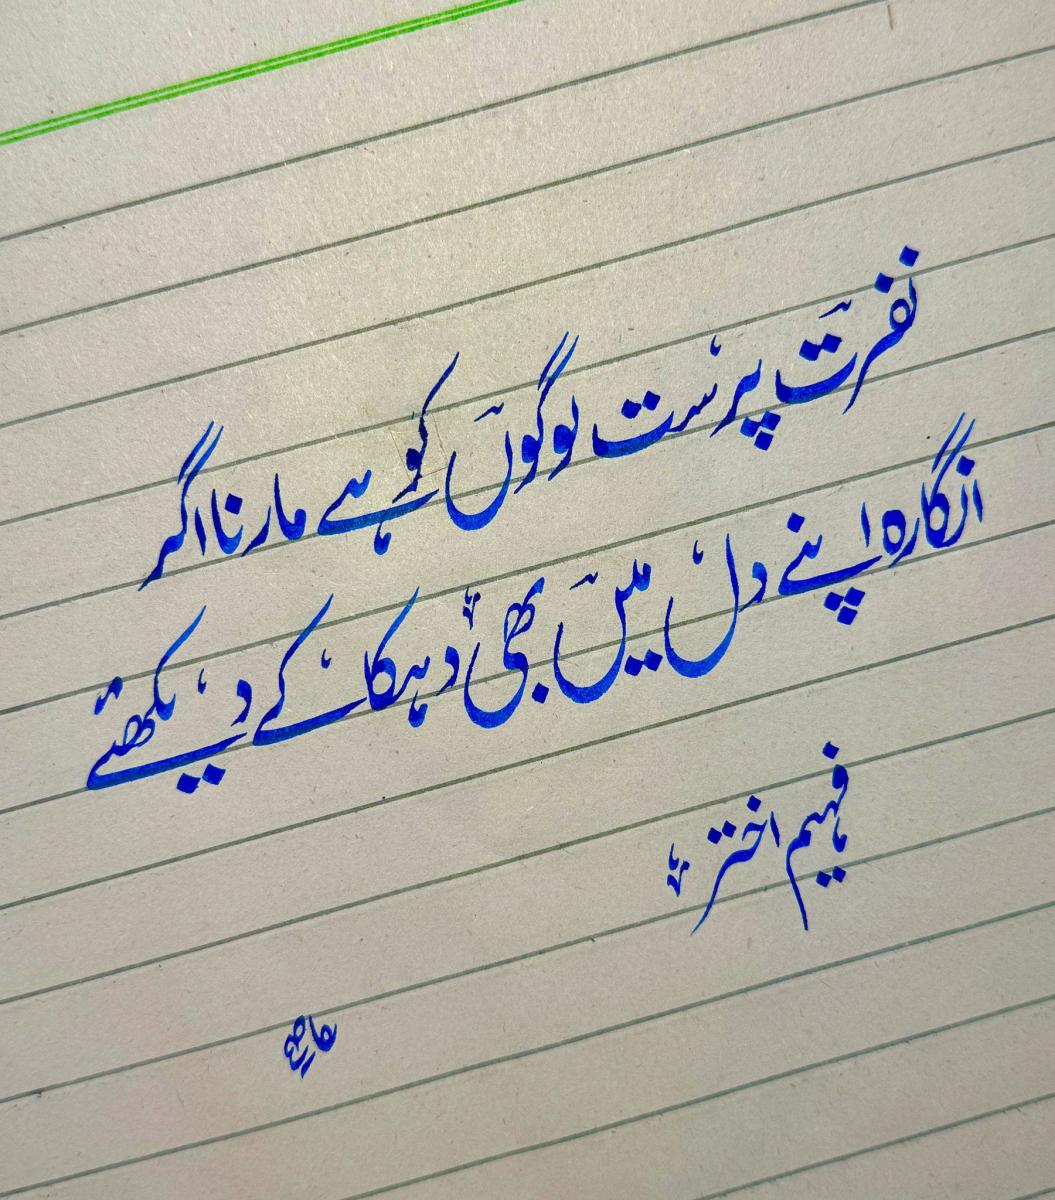 نفرت پرست لوگوں کو ہے مارنا اگر
انگارہ اپنے دل میں بھی دہکا کے دیکھتے
فہیم اختر